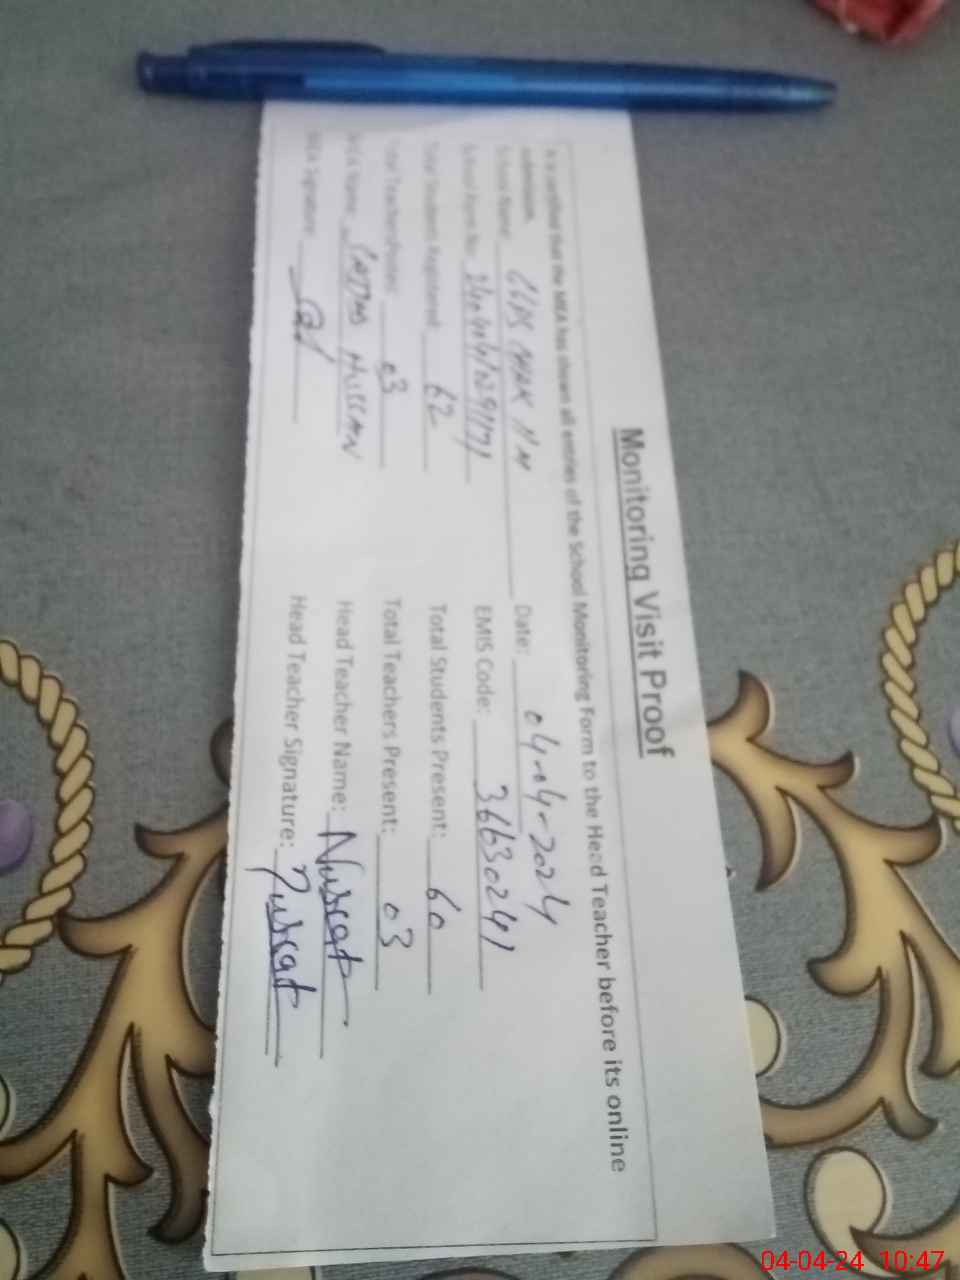 Monitoring Visit Proof
It is certified that the MEA has shown all entries of the School Monitoring Form to the Head Teacher before its online
submission.
School Name: Date: 04-04-2024
EMIS Code: 36630241
Total Students Registered: 62 Total Students Present: 60
Total Teachers 03 Total Teachers Present: 03
MEA Name: Head Teacher Name: Nusrat
MEA Signature: Head Teacher Signature: Nusrat
04-04-24 10:47